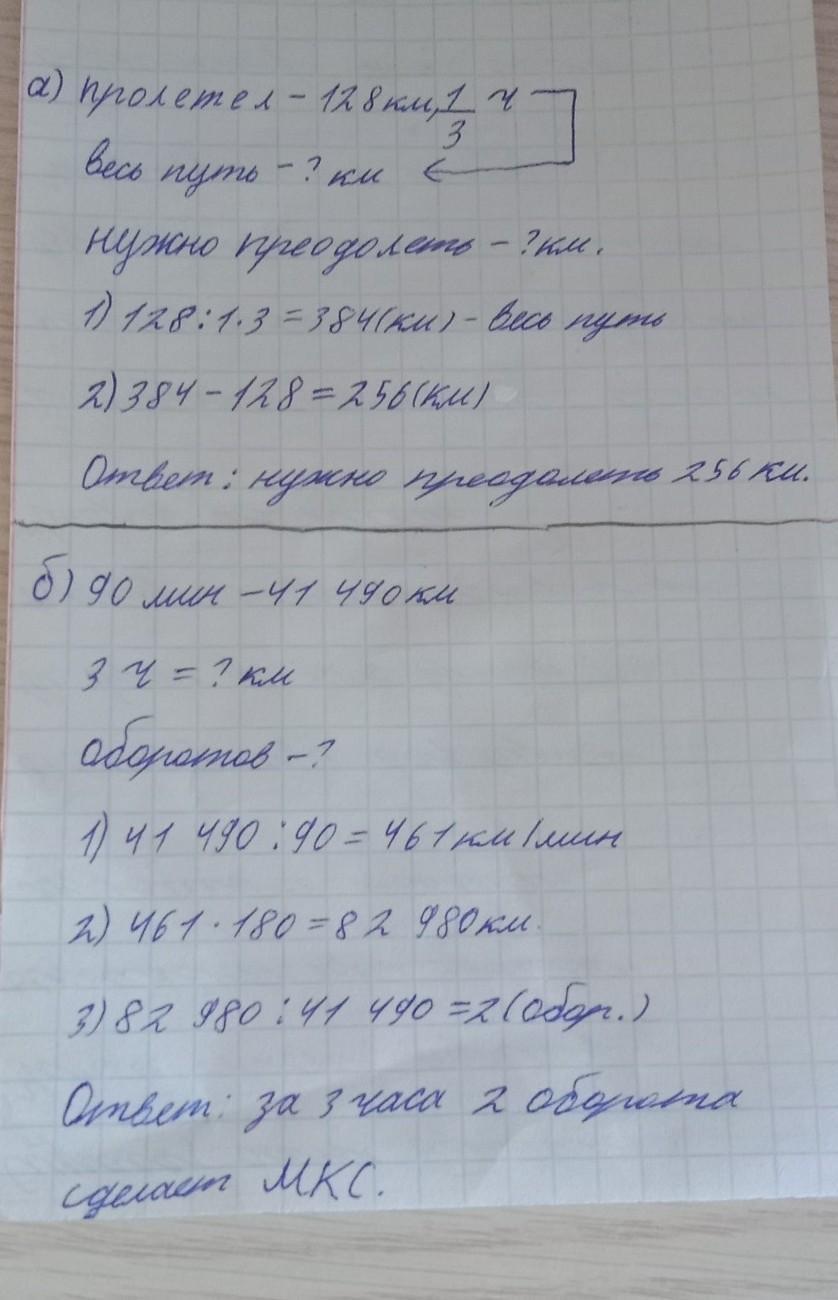 а) пролетел - 128 км, 1/3 ч
весь путь - ? км
нужно преодолеть - ? км.
1) 128 : 1 · 3 = 384 (км) - весь путь
2) 384 - 128 = 256 (км)
Ответ: нужно преодолеть 256 км.
б) 90 мин - 41 490 км
3 ч = ? км
оборотов - ?
1) 41 490 : 90 = 461 км/мин
2) 461 · 180 = 82 980 км.
3) 82 980 : 41 490 = 2 (обор.)
Ответ: за 3 часа 2 оборота
сделает МКС.